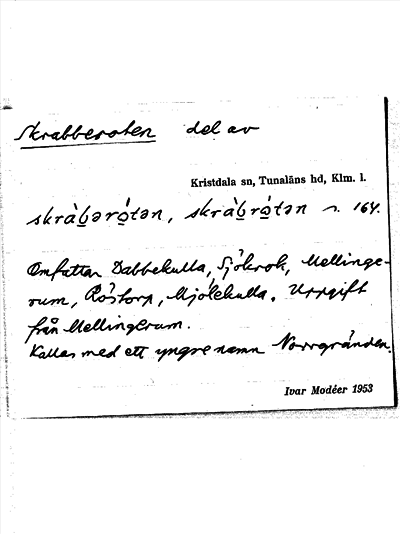 Skrabberoten del av
Kristdala sn, Tunaläns hd, Klm. l.
skràb̲əro̲tən, skràb̲ro̲tən s. 164.
Omfattar Dabbekulla, Sjökrok, Mellinge-
rum, Röstorp, Mjölekulla. Uppgift
från Mellingerum.
Kallas med ett yngre namn Norrgränden.
Ivar Modéer 1953